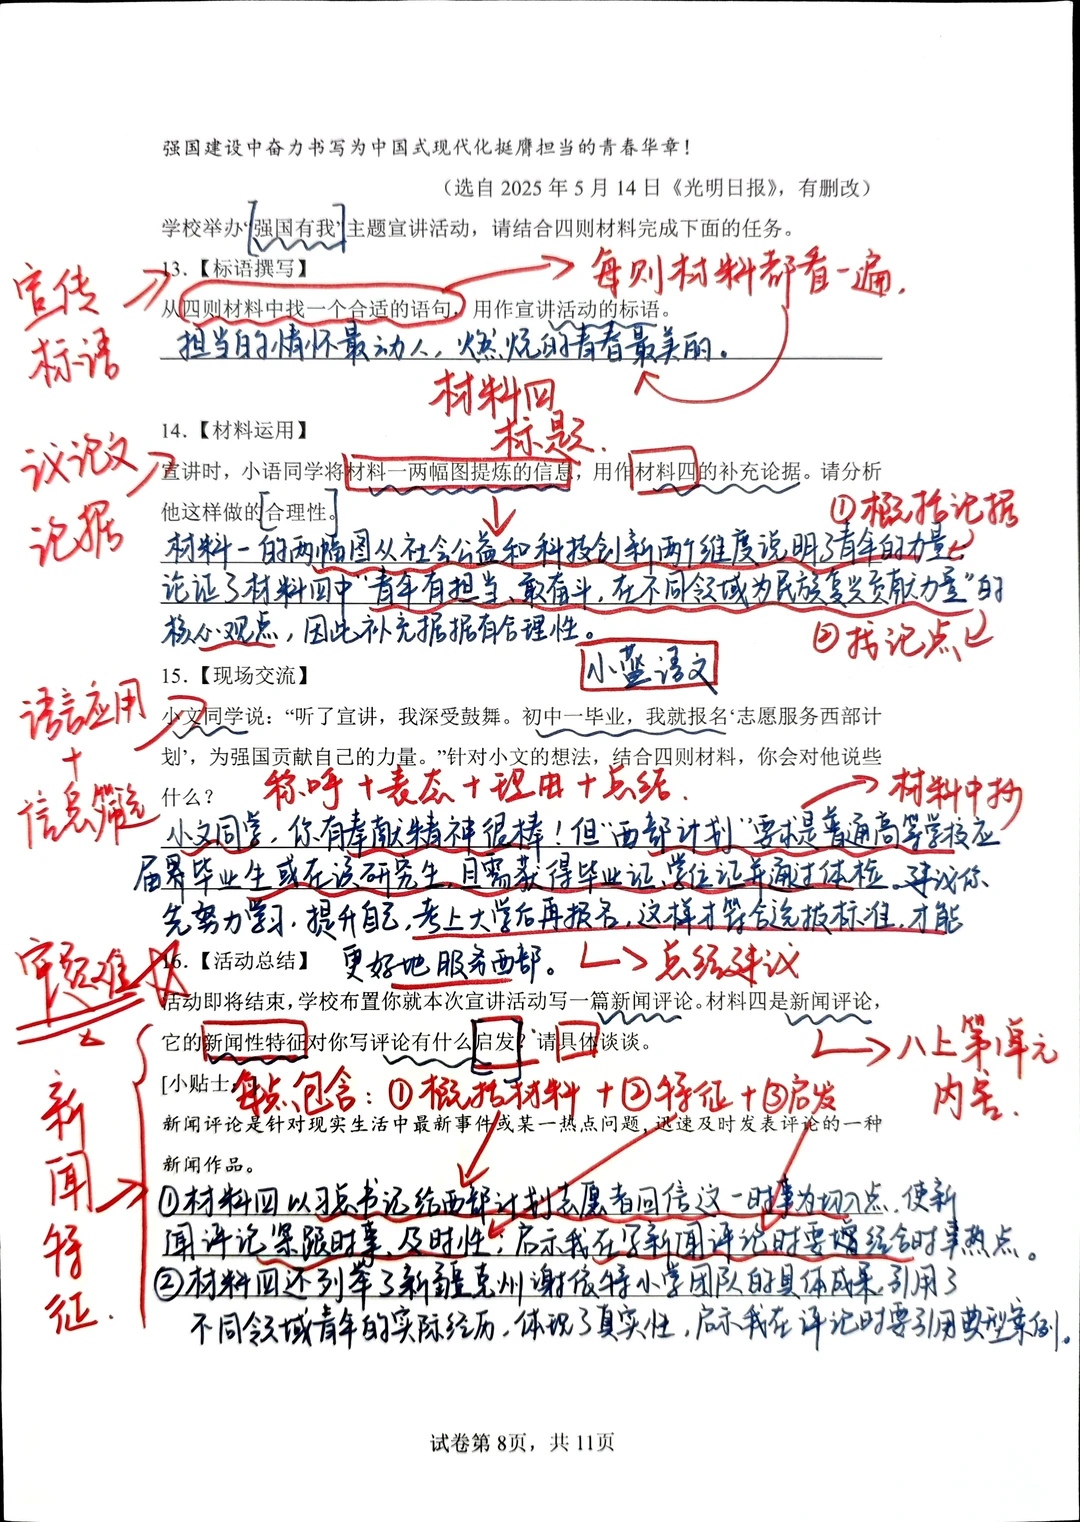 强国建设中奋力书写为中国式现代化挺膺担当的青春华章！
（选自 2025 年 5 月 14 日《光明日报》，有删改）
学校举办“强国有我”主题宣讲活动，请结合四则材料完成下面的任务。
13.【标语撰写】
每则材料都看一遍.
宣传标语
从四则材料中找一个合适的语句，用作宣讲活动的标语。
担当的情怀最动人，燃烧的青春最美丽。
材料四标题.
14.【材料运用】
议论文论据
宣讲时，小语同学将材料一两幅图提炼的信息，用作材料四的补充论据。请分析
他这样做的合理性。
①概括论据
材料一的两幅图从社会公益和科技创新两个维度说明了青年的力量
论证了材料四中“青年有担当、敢奋斗，在不同领域为民族复兴贡献力量”的
核心观点，因此补充据据有合理性。
②找论点
小蓝语文
15.【现场交流】
语言应用+信息筛选
小文同学说：“听了宣讲，我深受鼓舞。初中一毕业，我就报名‘志愿服务西部计
划’，为强国贡献自己的力量。”针对小文的想法，结合四则材料，你会对他说些
什么？
称呼+表态+理由+总结.
材料中抄
小文同学，你有奉献精神很棒！但“西部计划”要求是普通高等学校应
届毕业生或在读研究生，且需获得毕业证、学位证并通过体检。建议你
先努力学习，提升自己，考上大学后再报名，这样才符合选拔标准，才能
更好地服务西部。
总结建议
16.【活动总结】
审题难
活动即将结束，学校布置你就本次宣讲活动写一篇新闻评论。材料四是新闻评论，
它的新闻性特征对你写评论有什么启发？请具体谈谈。
八上第1单元内容.
[小贴士]
每点包含：①概括材料+②特征+③启发
新闻评论是针对现实生活中最新事件或某一热点问题，迅速及时发表评论的一种
新闻作品。
新闻特征.
①材料四以习总书记给西部计划志愿者回信这一时事为切入点，使新
闻评论紧跟时事、及时性，启示我在写新闻评论时要增结合时事热点。
②材料四还列举了新疆克州谢依特小学团队的具体成果，引用了
不同领域青年的实际经历，体现了真实性，启示我在评论时要引用典型案例。
试卷第 8页，共 11页